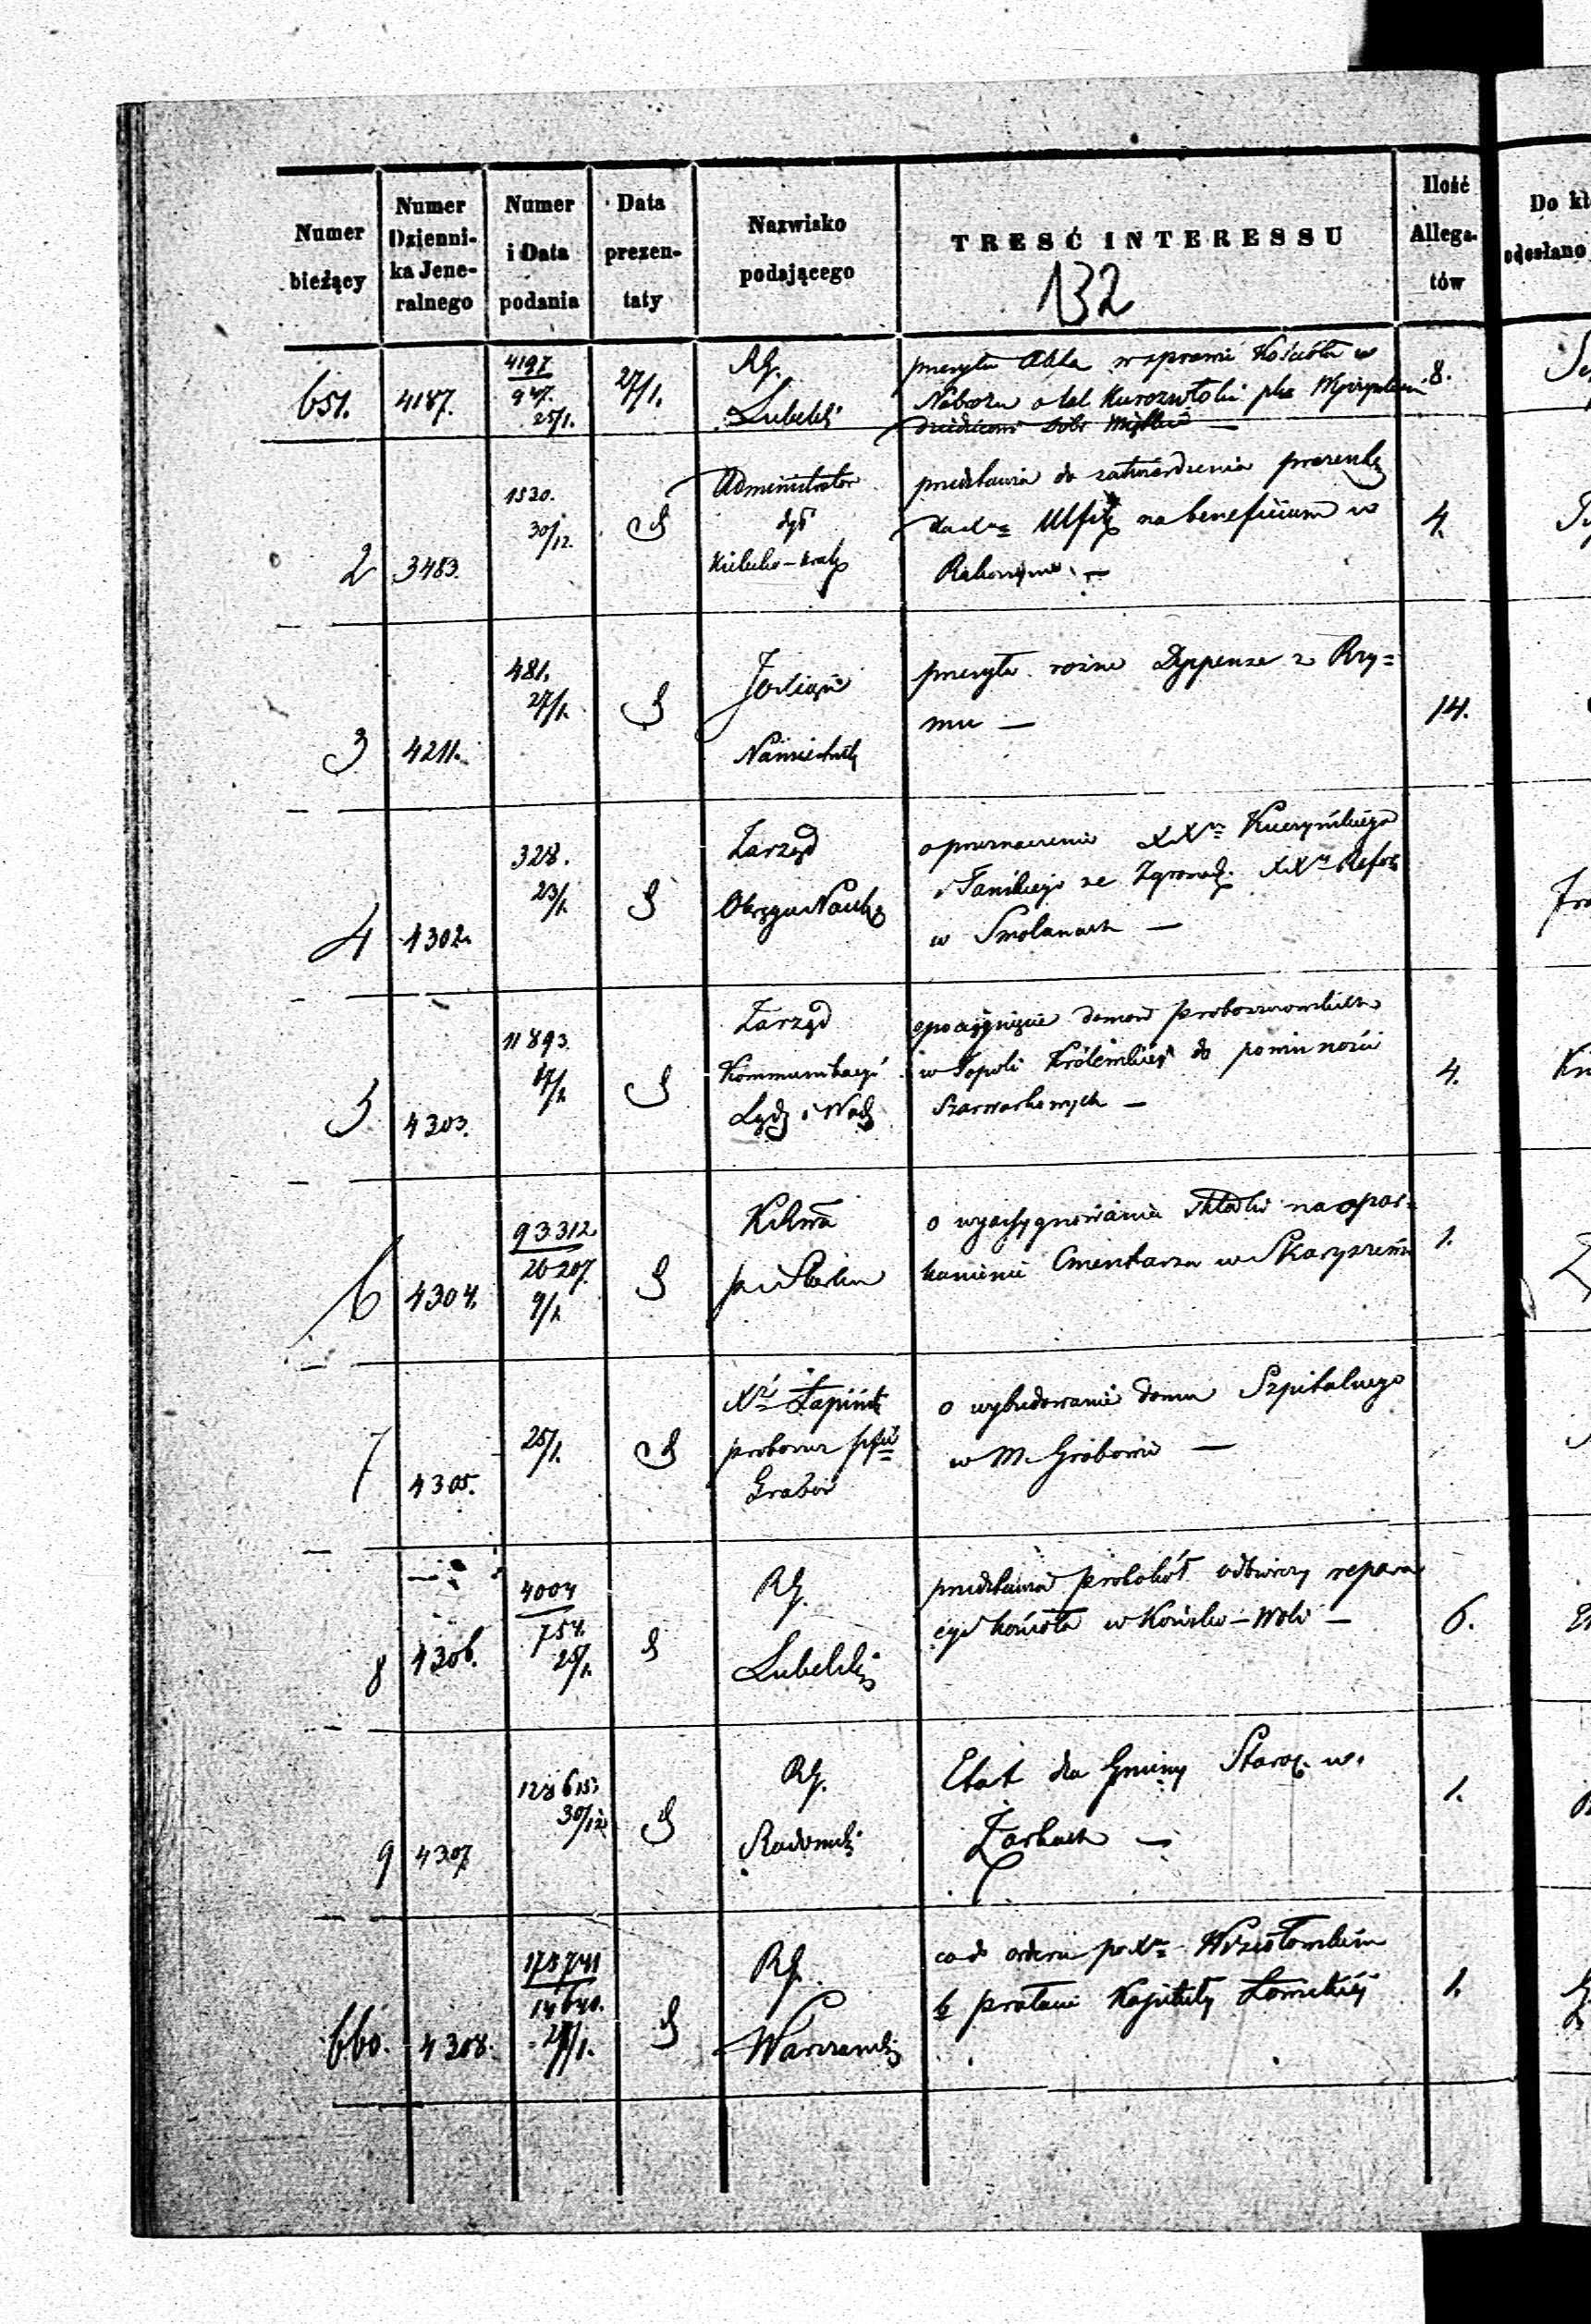 Numer bieżący
Numer Dzienni-ka Jene-ralnego
Numer i Data podania
Data prezen-taty
Nazwisko podającego
TRESĆ INTERESSU
Ilość Allega-tów
Do kt
odesłano
132
651. 4187. 4197 947. 25/1. 27/1. RG. Lubelski 8.
przesyła Akta w sprawie Kościoła w
Nabrożu o
2 3483. 1520. 30/12. Administrator dyi Kielecko-Krak 4.
przedstawia do zatwierdzenia prezentę
na beneficium w
3 4211. 481. 27/1. Namiestnik 14.
przesyła rożne Dyspense z Rzy=
mu —
4 4302. 328. 23/1. Zarząd Okręgu Nauk
o przeznaczenie XXa Kuczyńskiego
i Tańskiego ze Zgromadz. XXw Refor
w Smolanach —
5 4303. 11893. 17/1. Zarząd Kommunikacyi Ląd i Wod 4.
o pociągnięcie domow proboszczowskich
w Topoli Królewskiej do powinności
Szarwarkowych —
6 4304. 93312 20207. 9/1. 1.
o wyasygnowanie składki na opar=
kanienie Cmentarza w Skaryszewie
7 4305. 25/1. Xdz Łapiński proboszcz pfii Grabów
o wybudowanie domu Szpitalnego
w M. Grabowie —
8 4306. 4004 754. 25/1. RG. Lubelski 6.
przedstawia protokół odbiorczy repara
cyi kościoła w Końsko-Woli —
9 4307 128615. 30/12. RG. Radomski 1.
Etat dla Gminy Staroz. w.
Żarkach —
660. 4308. 178741 14640. 27/1. RG. Warszawski 1.
co do orderu po Xu
b prałacie Kapituły Łowickiej